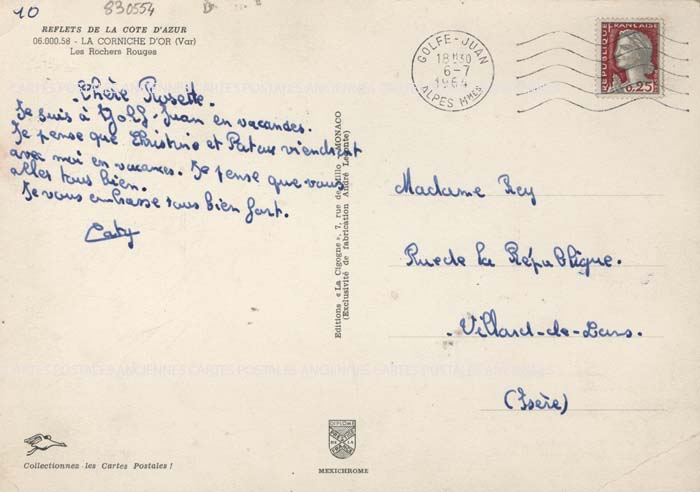 10
830554
REFLETS DE LA COTE D'AZUR
06.000.58 - LA CORNICHE D'OR (Var)
Les Rochers Rouges
Chère Rosette.
Je suis à Golf-Juan en vacances.
Je pense que Christine et viendront
avec moi en vacances. Je pense que vous
alles tous bien.
Je vous embrasse tous bien fort.
Caty
Editions « La Cigogne », 7, rue de Millo - MONACO
(Exclusivité de fabrication André Leconte)
GOLFE-JUAN
18H30
6-7
1964
ALPES Mmes
REPUBLIQUE
FRANÇAISE
0,25
Madame Rey
Rue de la République.
Villard-de-Lans.
(Isère)
ARTES POSTALES ANCIENNES CARTES POSTALES ANCIENNES
Collectionnez les Cartes Postales !
DIPLOME
PRESTIGE
DE LA
FRANCE
MEXICHROME